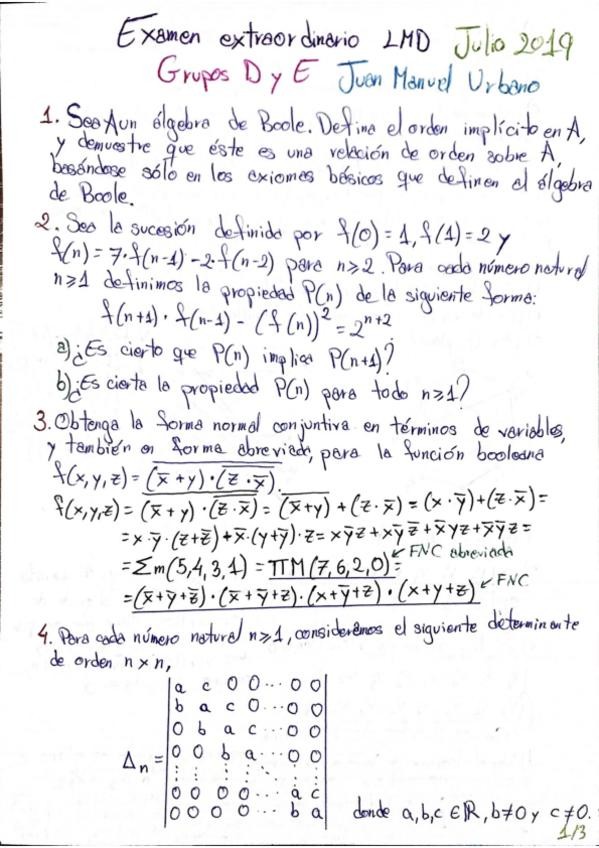 Examen extraordinario LMD Julio 2019
Grupos D y E Juan Manuel Urbano
1. Sea A un álgebra de Boole. Defina el orden implícito en A,
y demuestre que éste es una relación de orden sobre A,
basándose sólo en los axiomas básicos que definen el álgebra
de Boole.
2. Sea la sucesión definida por f(0)=1, f(1)=2 y
f(n)=7·f(n-1)-2·f(n-2) para n≥2. Para cada número natural
n≥1 definimos la propiedad P(n) de la siguiente forma:
f(n+1)·f(n-1)-(f(n))²=2ⁿ⁺²
a) ¿Es cierto que P(n) implica P(n+1)?
b) ¿Es cierta la propiedad P(n) para todo n≥1?
3. Obtenga la forma normal conjuntiva en términos de variables,
y también en forma abreviada, para la función booleana
f(x,y,z)=\overline{(x̄+y)·(\overline{z·x̄})}.
f(x,y,z)=\overline{(x̄+y)·(\overline{z·x̄})}=\overline{(x̄+y)}+(z·x̄)=(x·ȳ)+(z·x̄)=
=x·ȳ·(z+z̄)+x̄·(y+ȳ)·z=xȳz+xȳz̄+x̄yz+x̄ȳz=
=Σm(5,4,3,1)=ΠM(7,6,2,0)= FNC abreviada
=(x̄+ȳ+z̄)·(x̄+ȳ+z)·(x+ȳ+z)·(x+y+z) FNC
4. Para cada número natural n≥1, consideremos el siguiente determinante
de orden n×n,
a c 0 0 ··· 0 0
b a c 0 ··· 0 0
0 b a c ··· 0 0
Δₙ= 0 0 b a ··· 0 0
0 0 0 0 ··· a c
0 0 0 0 ··· b a donde a,b,c∈ℝ, b≠0 y c≠0.
1/3